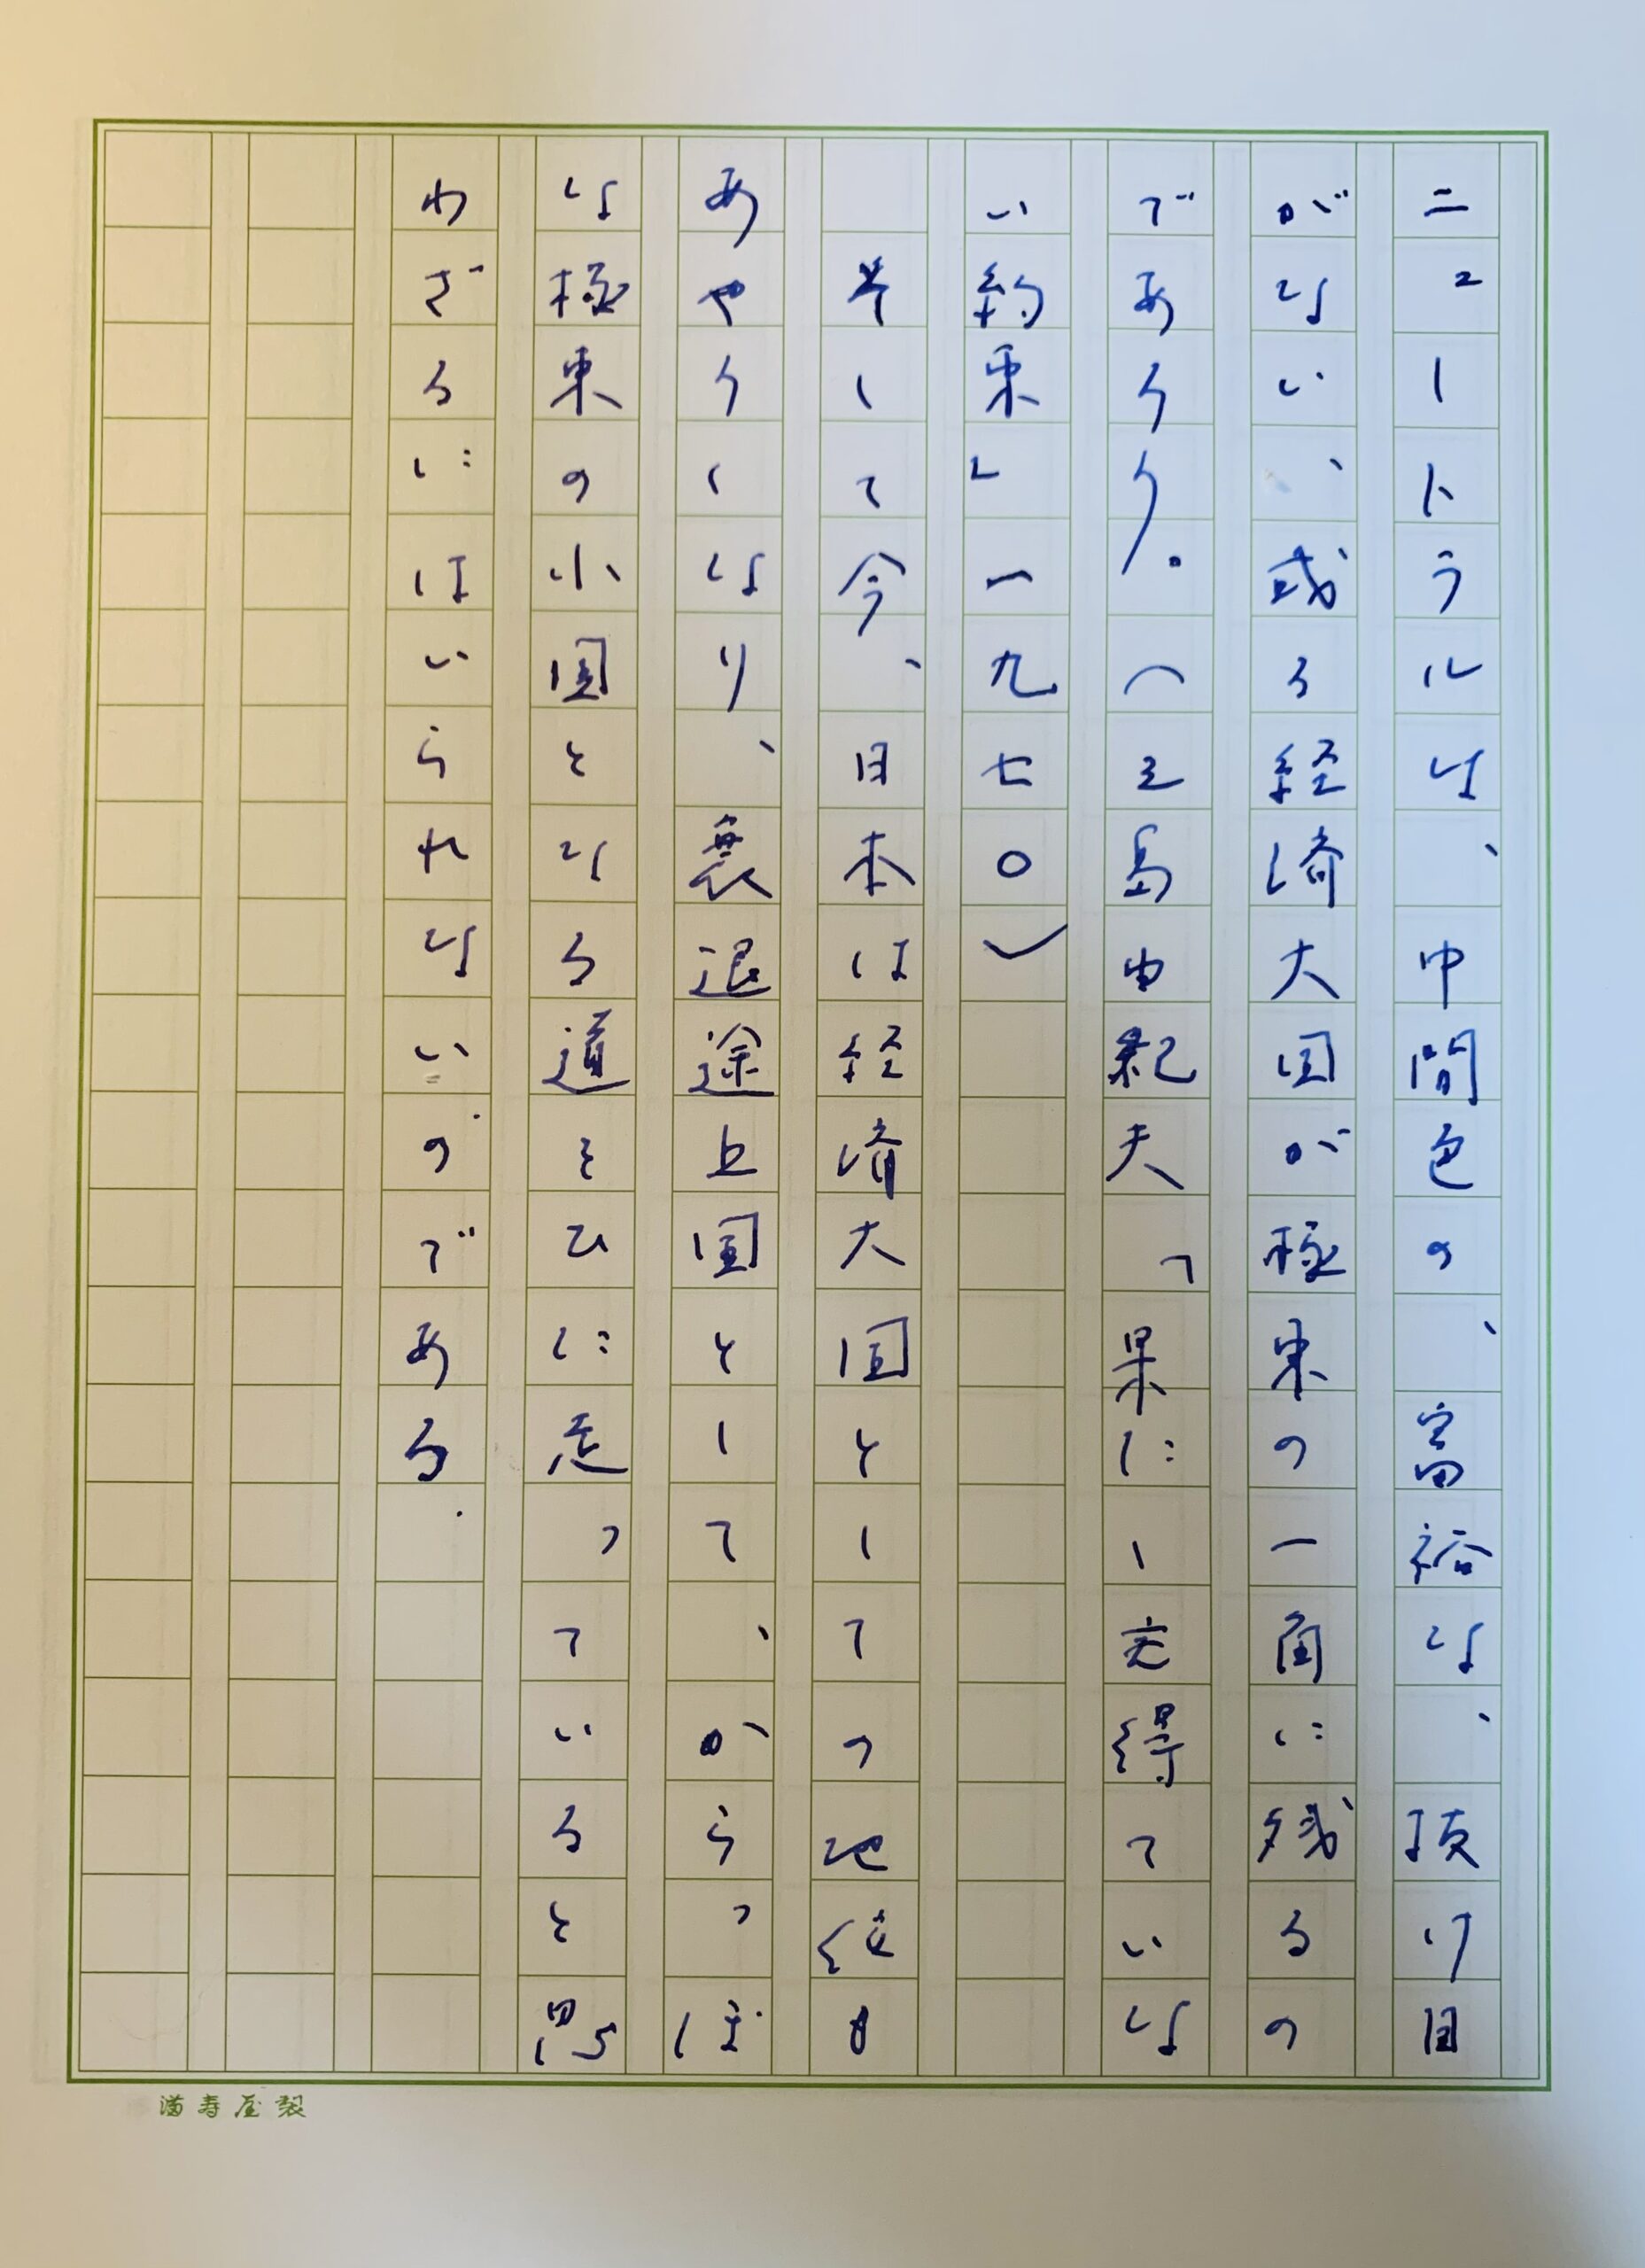 ニュートラルな、中間色の、富裕な、抜け目
がない、或る経済大国が極東の一角に残るの
であらう。（三島由紀夫「果たし売得ていな
い約束」一九七〇）
そして今、日本は経済大国としての地位も
あやうくなり、衰退途上国として、からっぽ
な極東の小国となる道をひた走っていると思
わざるにはいられないのである。
満寿屋製